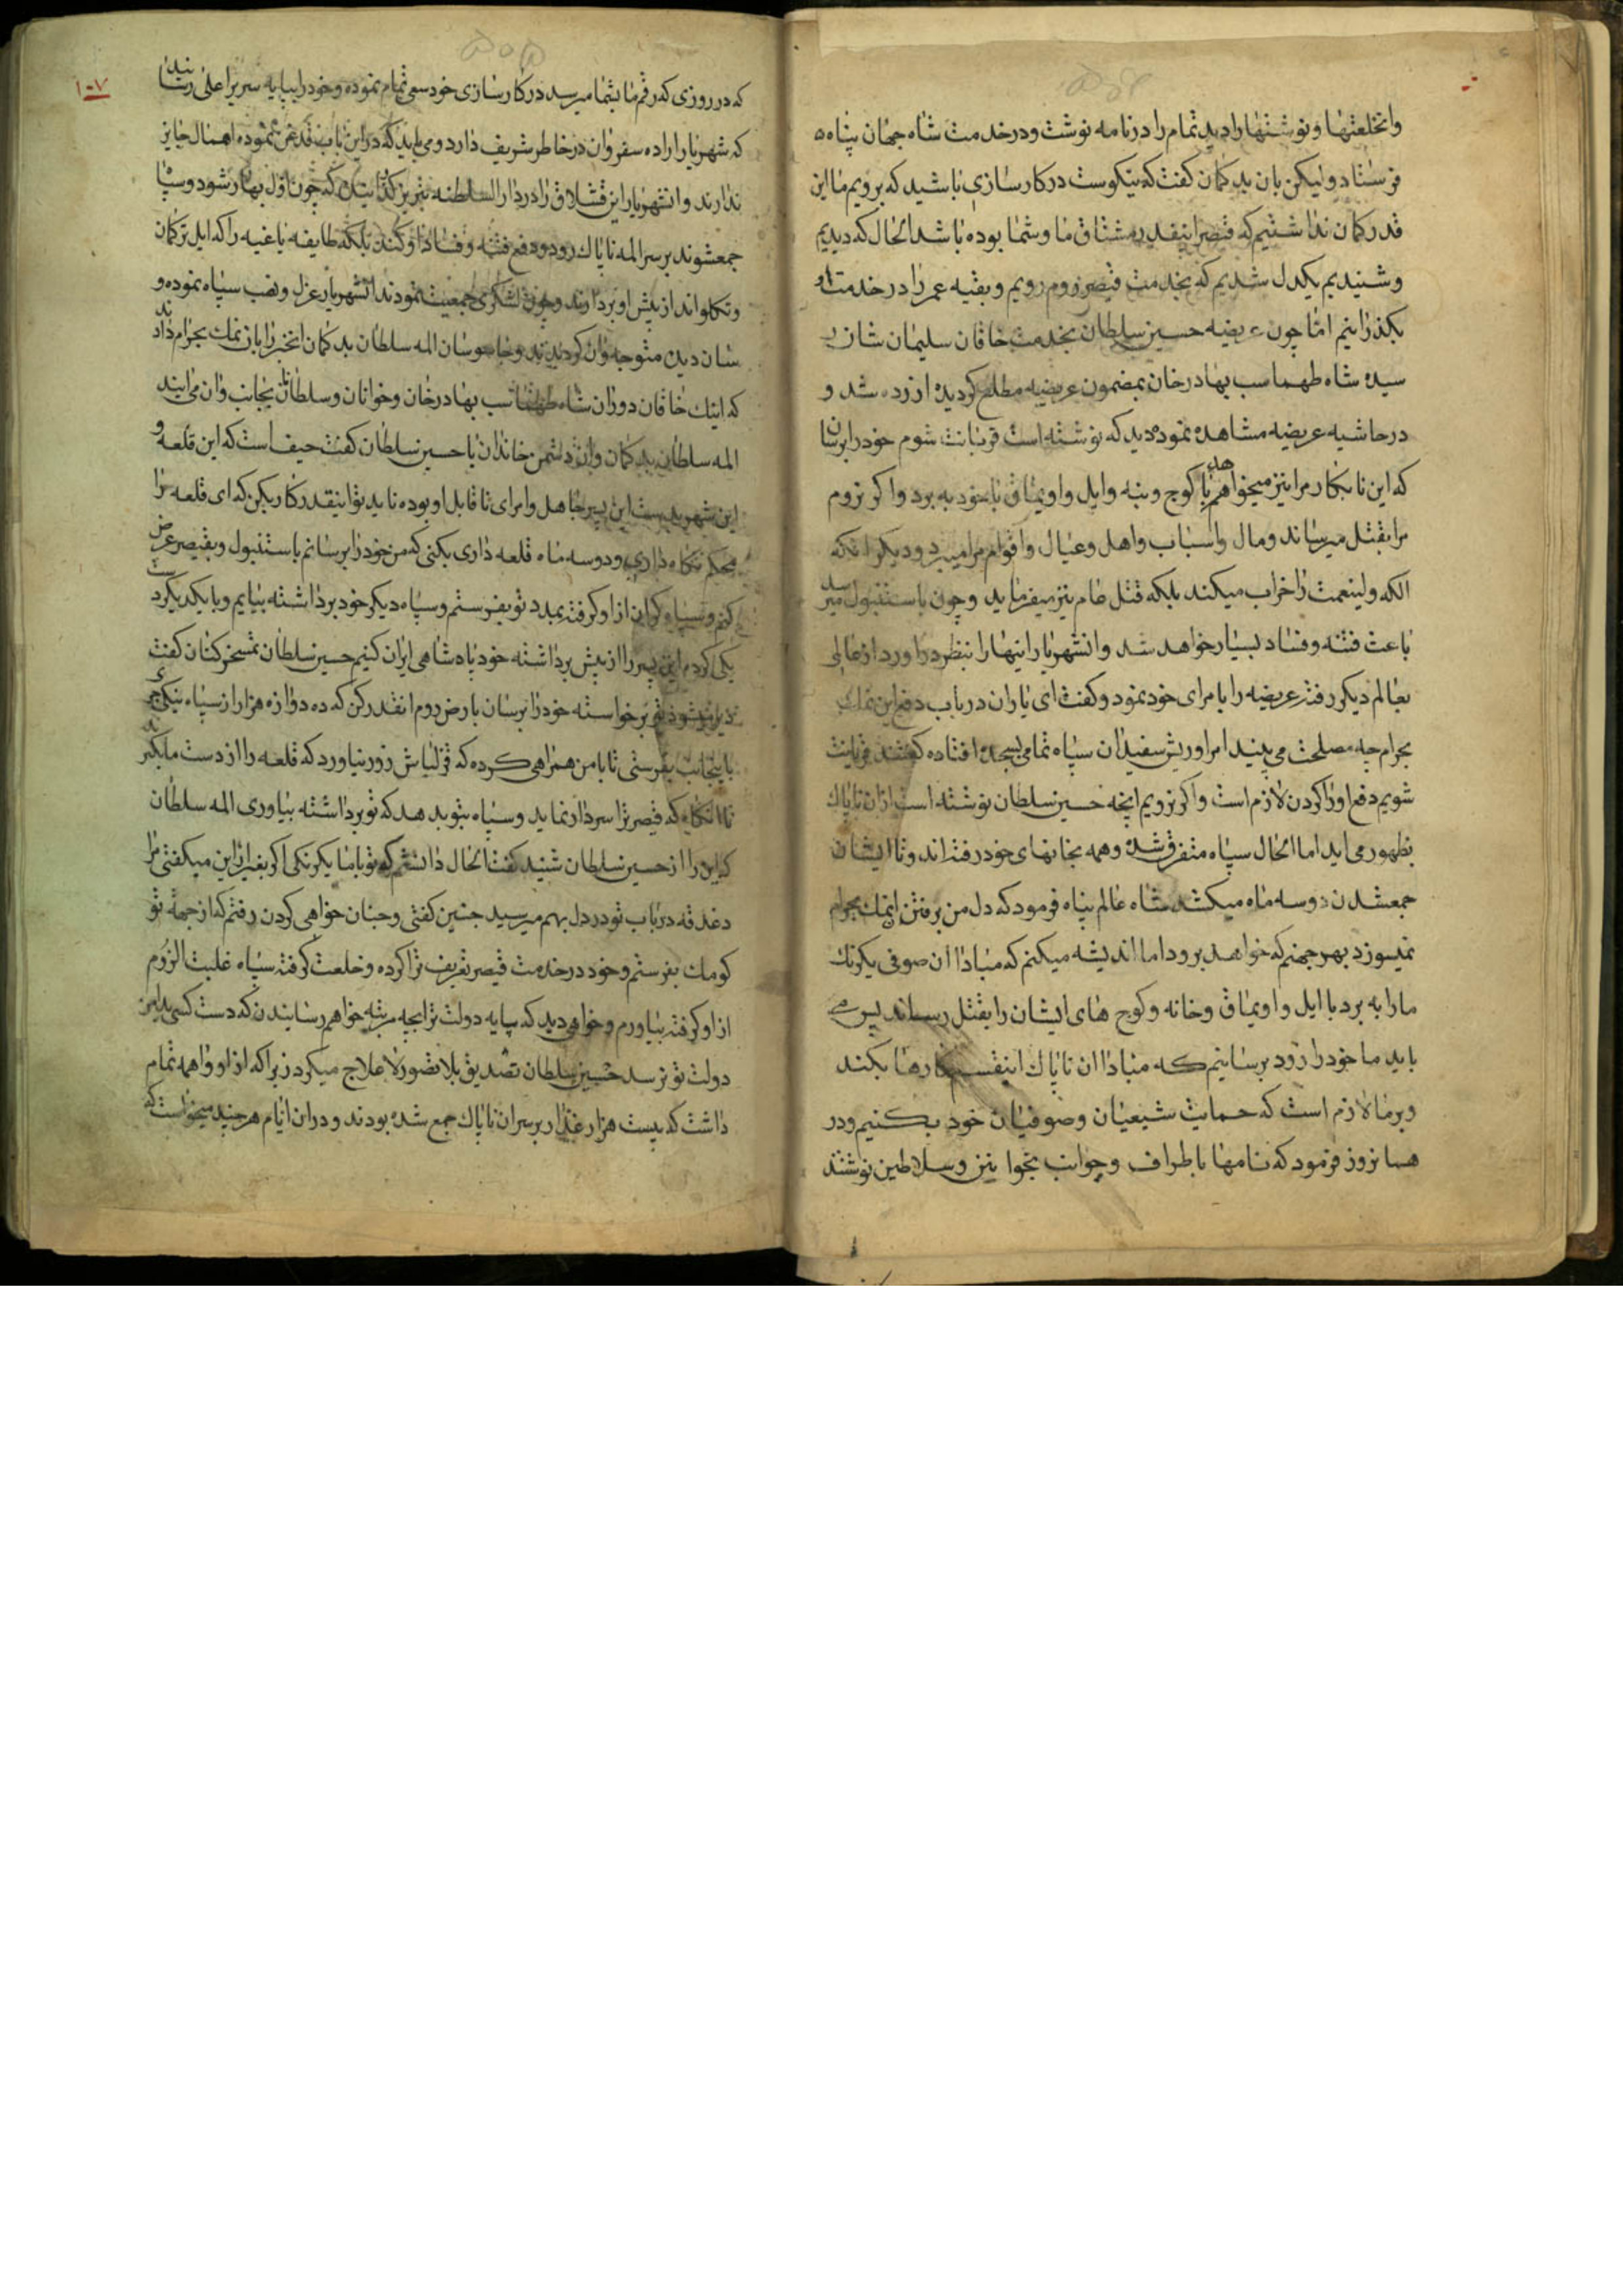 وانخلعتها و نوشتنها را دید تمام را در نامه نوشت و در خدمت شاه جهان پناه
فرستاد و لیکن بان بد کمان کفت که نیکوست در کارسازی باشید که برویم ما این
قدر کمان نداشتیم که قیصر اینقدر مشتاق ما و شما بوده باشد الحال که دیدیم
و شنیدیم یکدل شدیم که بخدمت قیصر روم رویم و بقیه عمر را در خدمت او
بکذرانیم اما چون عریضه حسین سلطان بخدمت خاقان سلیمان شان
سید شاه طهماسب بهادرخان بمضمون عریضه مطلع کردیده ازرده شد و
در حاشیه عریضه مشاهده نموده دید که نوشته است قربانت شوم خود را برسان
که این نابکار مرا نیز میخواهد با کوچ و بنه و ایل و اویماق با خود به برد و اکر نروم
مرا بقتل میرساند و مال و اسباب و اهل و عیال و اقوام مرا میبرد و دیکر انکه
الکه ولینعمت را خراب میکند بلکه قتل عام نیز میفرماید و چون باستنبول میرسد
باعث فتنه و فساد بسیار خواهد شد و انشهریار اینها را بنظر دراورد از عالمی
بعالم دیکر رفته عریضه را بامرای خود نمود و کفت ای یاران در باب دفع این نمک
بحرام چه مصلحت می بینید امرا و ریش سفیدان سپاه تمامی بسجده افتاده کفتند قربانت
شویم دفع او را کردن لازم است و اکر نرویم انچه حسین سلطان نوشته است ازان ناپاک
بظهور می اید اما الحال سپاه متفرق شده و همه بخانهای خود رفته اند و تا ایشان
جمعشدن دو سه ماه میکشد شاه عالم پناه فرمود که دل من برفتن انمک بحرام
نمیسوزد بهر جهنم که خواهد برود اما اندیشه میکنم که مبادا ان صوفی یکرنک
ما را به برد با ایل و اویماق و خانه و کوچ های ایشان را بقتل رساند پس می
باید ما خود را زود برسانیم که مبادا ان ناپاک اینقسم کارها بکند
و بر ما لازم است که حمایت شیعیان و صوفیان خود بکنیم و در
همانروز فرمود که نامها باطراف و جوانب بخوانین و سلاطین نوشتند
۱۰۷
که در روزی که رقم ما بشما میرسد در کارسازی خود سعی تمام نموده و خود را بپایه سریر اعلی رسانند
که شهریار اراده سفر وان در خاطر شریف دارد و می باید که در این باب قدغن نموده اهمال جایز
ندارند و انشهریار این قشلاق را در دار السلطنه تبریز کذانید که چون اول بهار شود و سپاه
جمعشوند بر سر المه ناپاک رود و دفع فتنه و فساد او کند بلکه طایفه یاغیه را که ایل ترکمان
و تکلواند از پیش او بردارند و چون لشکری جمعیت نمودند انشهریار عزل و نصب سپاه نموده و
سان دیده متوجه وان کردیدند و جاسوسان المه سلطان بد کمان انخبر را بان نمک بحرام دادند
که اینک خاقان دوران شاه طهماسب بهادرخان و خوانان و سلطانان بجانب وان می ایند
المه سلطان بد کمان وان دشمن خاندان با حسین سلطان کفت حیف است که این قلعه و
این شهر بدست این پیر جاهل و امرای ناقابل او بوده باید تو اینقدر کار بکن که ای قلعه را
محکم نکاه داری و دو سه ماه قلعه داری بکنی که من خود را برسانم باستنبول و بقیصر عرض
کنم و سپاه کران از او کرفته بمدد تو بفرستم و سپاه دیکر خود برداشته بیایم و با یکدیکر دست
یکی کرده این پیر را از پیش برداشته خود پادشاهی ایران کنیم حسین سلطان تمسخر کنان کفت
دیر میشود تو برخواسته خود را برسان بارض روم انقدر کن که ده دوازه هزار از سپاه نیکچری
باینجانب بفرستی تا با من همراهی کرده که قزلباش زور نیاورد که قلعه را از دست ما بکیرد
تا انکاه که قیصر ترا سردار نماید و سپاه بتو بدهد که تو برداشته بیاوری المه سلطان
که این را از حسین سلطان شنید کفت الحال دانستم که تو با ما یکرنکی اکر بغیر از این میکفتی مرا
دغدقه در باب تو در دل بهم میرسید چنین کفتی و چنان خواهی کردن رفتم که از جهة تو
کومک بفرستم و خود در خدمت قیصر تعریف ترا کرده و خلعت کرفته سپاه غلبت الروم
از او کرفته بیاورم و خواهی دید که پایه دولت ترا بچه مرتبه خواهم رسانیدن که دست کسی بداین
دولت تو نرسد حسین سلطان تصدیق بلا تصور لا علاج میکرد زیرا که از او واهمه تمام
داشت که بیست هزار غدار بر سر ان ناپاک جمع شده بودند و دران ایام هر چند میخواست که